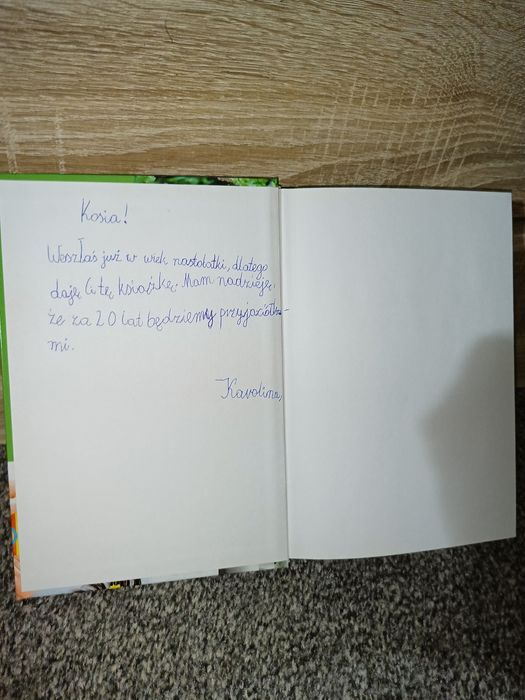 Kosia!
Weszłaś już w wiek nastolatki, dlatego
daję Ci tę książkę. Mam nadzieję,
że za 20 lat będziemy przyjaciółka-
mi.
Karolina